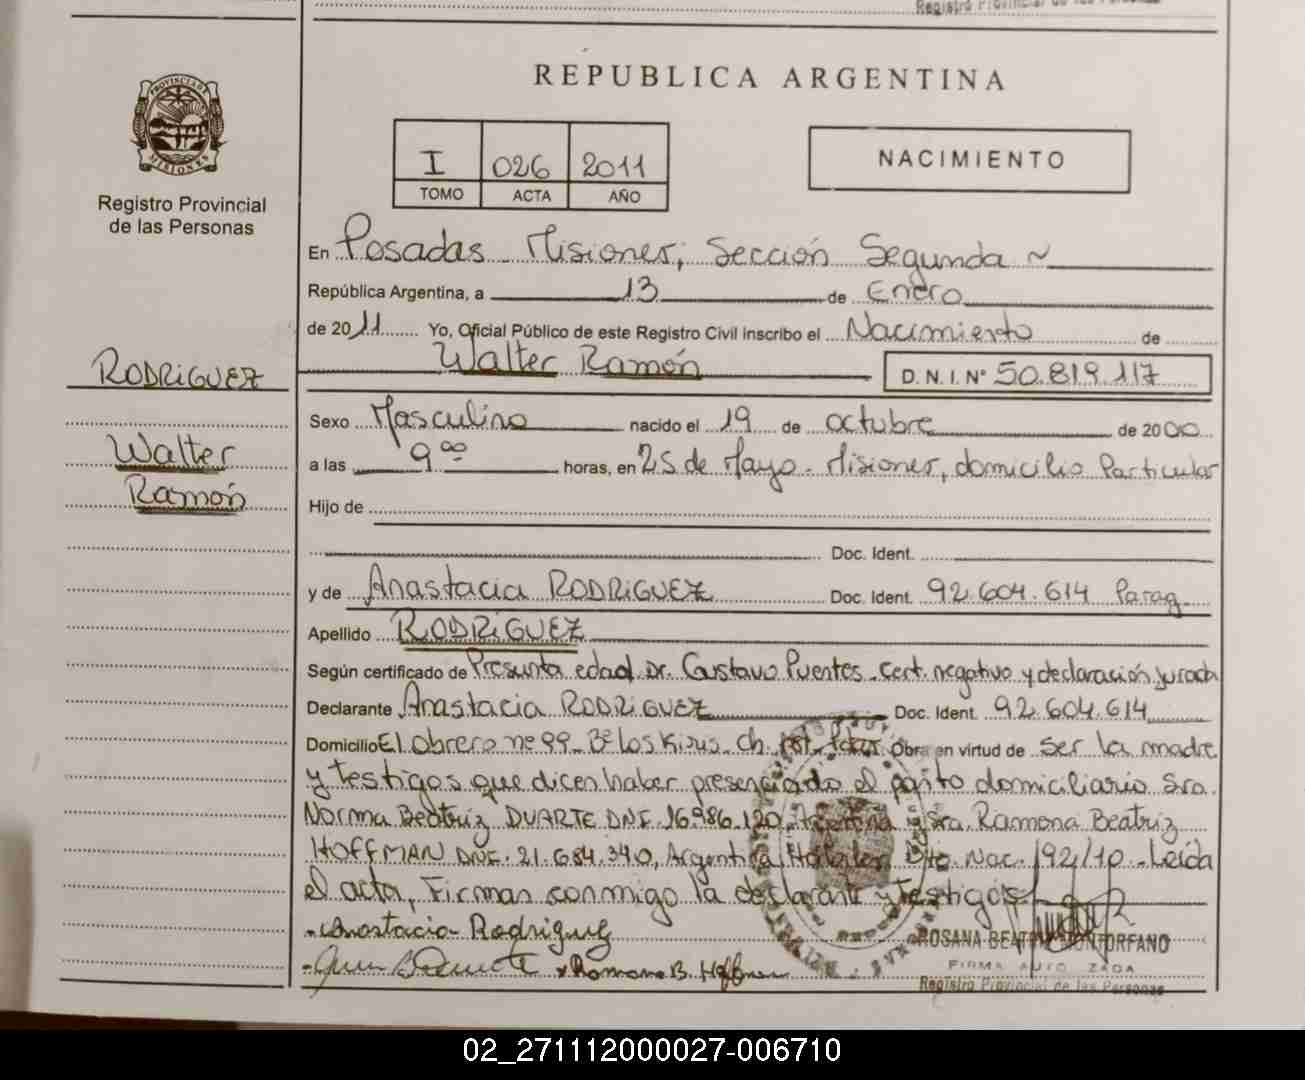 Registro Provincial de las Personas
REPUBLICA ARGENTINA
PROVINCIA DE MISIONES
Registro Provincial
de las Personas
I 026 2011
TOMO ACTA AÑO
NACIMIENTO
En Posadas Misiones, Sección Segunda
República Argentina, a 13 de Enero
de 2011 Yo, Oficial Público de este Registro Civil inscribo el Nacimiento de
Walter Ramón D.N.I. Nº 50.819.117
RODRIGUEZ
Walter
Ramón
Sexo Masculino nacido el 19 de octubre de 2000
a las 9 00 horas, en 25 de Mayo. Misiones, domicilio Particular
Hijo de
Doc. Ident.
y de Anastacia RODRIGUEZ Doc. Ident. 92.604.614 Parag
Apellido RODRIGUEZ
Según certificado de Presunta edad Dr. Gustavo Puentes. Cert. negativo y declaración jurada
Declarante Anastacia RODRIGUEZ Doc. Ident. 92.604.614
Domicilio El Obrero nº 99 - Bº los Kiris - Ch. Obra en virtud de ser la madre
y testigos que dicen haber presenciado el parto domiciliario Sra.
Norma Beatriz DUARTE DNI. 16.986.120, Sra. Ramona Beatriz
HOFFMAN DNI. 21.684.340, Argentina Dto. Nac. 192/10 - Leída
el acta, Firman conmigo la declarante y testigos
Anastacia Rodriguez
Ramona B. Hoffman
ROSANA BEATRIZ MONTORFANO
FIRMA AUTORIZADA
Registro Provincial de las Personas
02_271112000027-006710